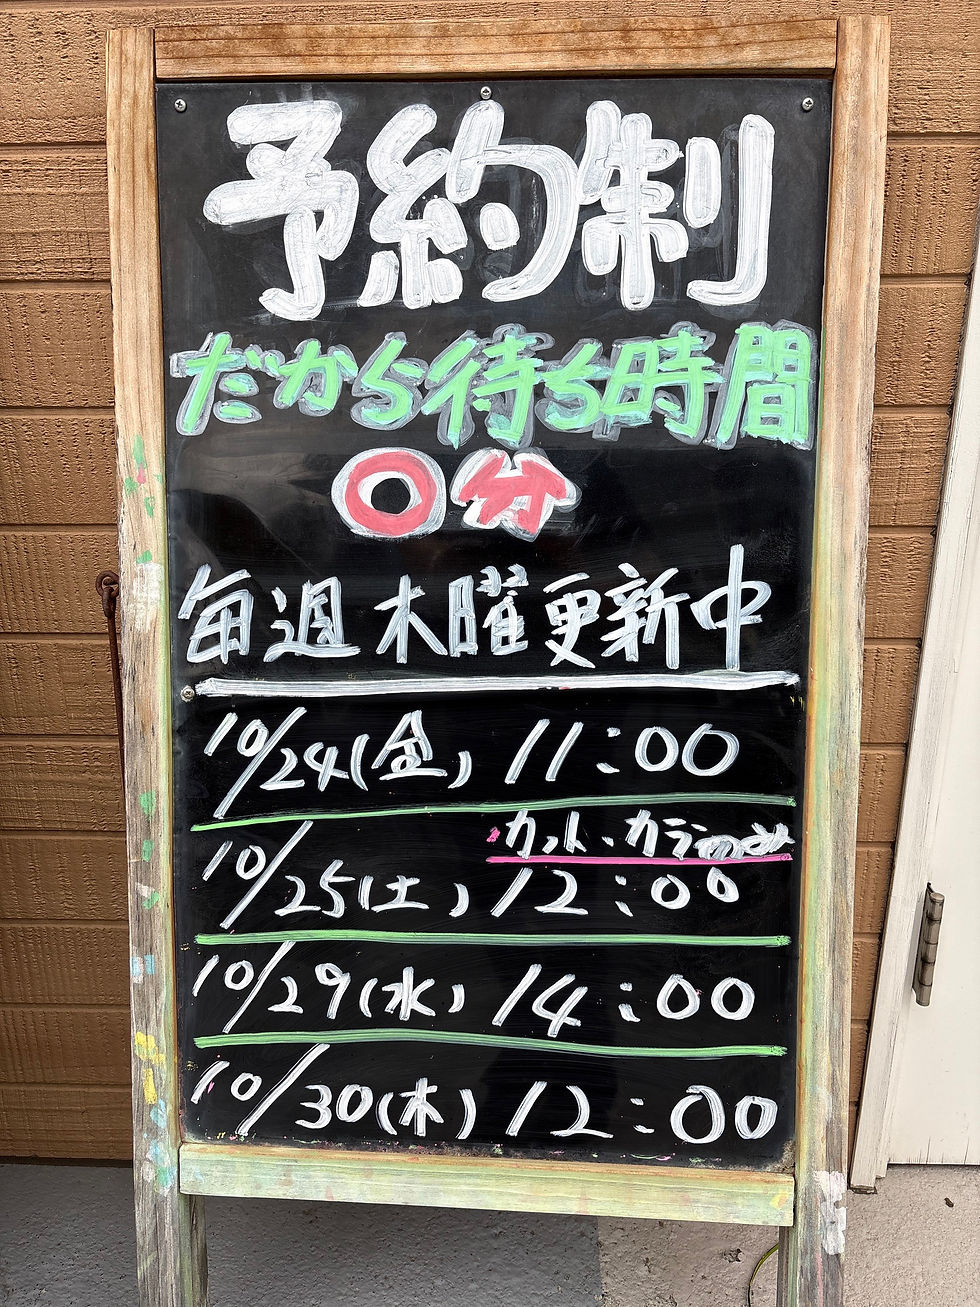 予約制
だから待ち時間
〇分
毎週木曜更新中
10/24(金) 11:00
カット・カラーのみ
10/25(土) 12:00
10/29(水) 14:00
10/30(木) 12:00